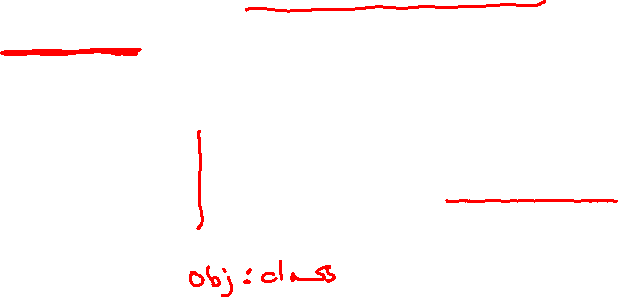 obj : class